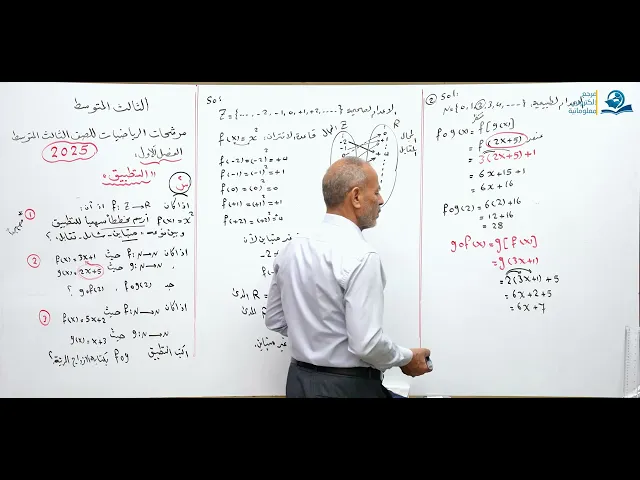 الثالث المتوسط
مرشحات الرياضيات للصف الثالث المتوسط
الفصل الأول
2025
" التطبيق "
س
1 اذا كان f: Z→R اذ أن
f(x)=x² ارسم مخططاً سهمياً للتطبيق
وبين نوعه متباين شامل تقابل؟
2 اذا كان f: N→N حيث f(x)=3x+1
g: N→N حيث g(x)=2x+5
جد fog(2) ، gof(2) ؟
3 اذا كان f: N→N حيث f(x)=5x+2
g: N→N حيث g(x)=x+3
اكتب التطبيق fog بكتابة الازواج المرتبة؟
Sol:
Z={....,-2,-1,0,+1,+2,....} الاعداد الصحيحة
f(x)=x² قاعدة الاقتران
المجال
Z
R
المجال المقابل
f(-2)=(-2)²=+4
f(-1)=(-1)²=+1
f(0)=(0)²=0
f(+1)=(+1)²=+1
f(+2)=(+2)²=+4
غير متباين لأن
المدى
R
غير متباين
2 Sol:
N={0,1,2,3,4,....} الاعداد الطبيعية
fog(x)=f[g(x)]
=f(2x+5)
=3(2x+5)+1
=6x+15+1
=6x+16
fog(2)=6(2)+16
=12+16
=28
gof(x)=g[f(x)]
=g(3x+1)
=2(3x+1)+5
=6x+2+5
=6x+7